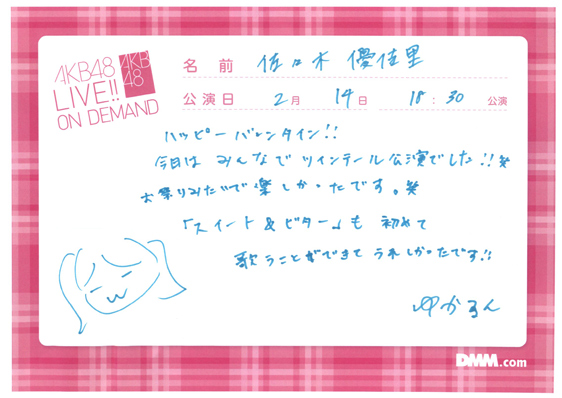 AKB48
LIVE!!
ON DEMAND
AKB
48
名前 佐々木 優佳里
公演日 2月 14日 18:30 公演
ハッピーバレンタイン!!
今日はみんなでツインテール公演でした!!
お祭りみたいで楽しかったです。
「スイート&ビター」も初めて
歌うことができてうれしかったです!!
ゆかるん
DMM.com